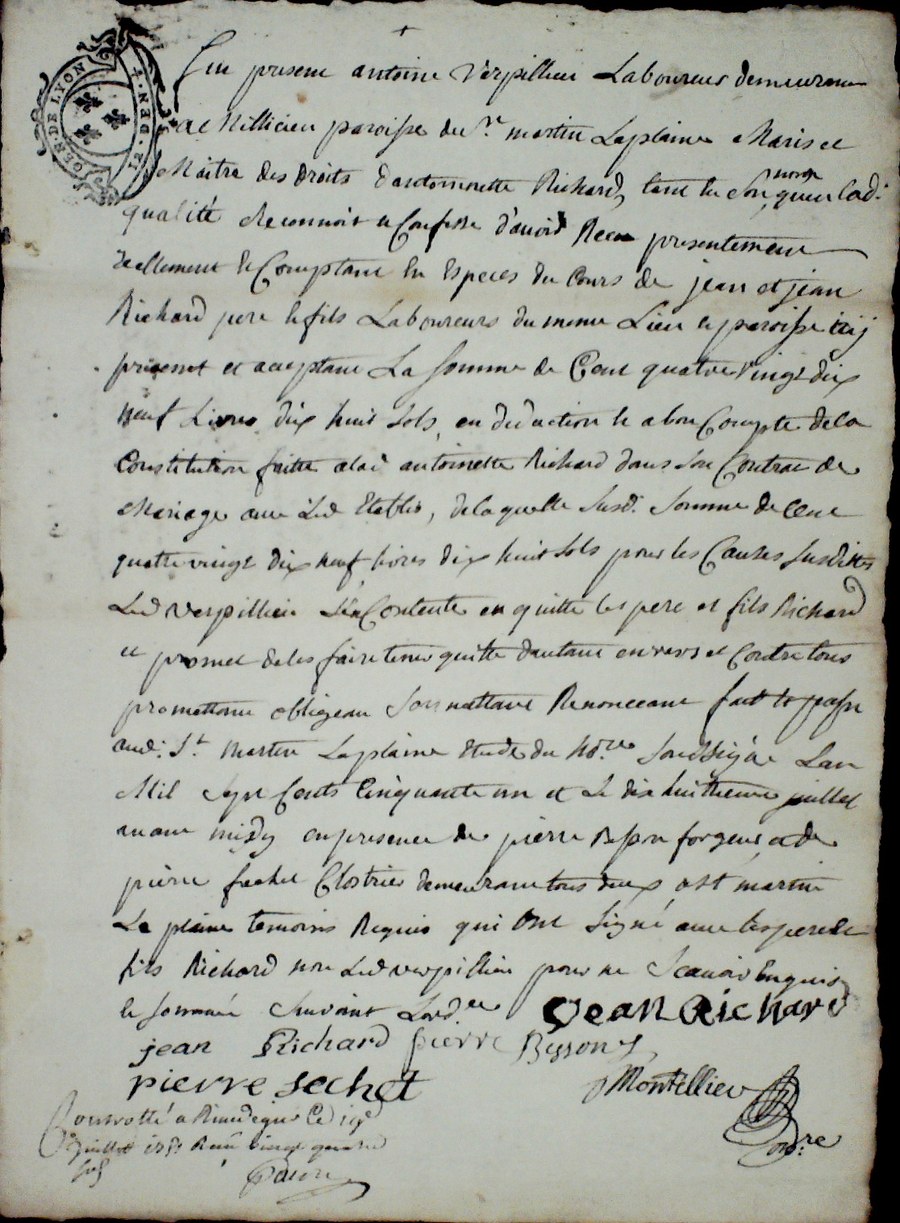 GEN. DE LYON
12. DEN. 4
Fut present antoine Verpillieu Laboureur demeurant
paroisse de St. martin Laplaine Maris et
Maitre des droits d'antoinette Richard, tant en Son nom qu'en lad.
qualité Reconnoit et Confesse d'avoir Receu presentement
reellement et Comptant En Especes du Cours de jean et jean
Richard pere et fils Laboureurs du meme Lieu et paroisse icy
present et acceptant La Somme de Cent quatre Vingt dix
neuf Livres dix huit Sols, en deduction et a bon Compte de la
Constitution faitte alad antoinette Richard dans Son Contrat de
Mariage avec Led Etablis, de laquelle Susd. Somme de Cent
quatre vingt dix neuf livres dix huit Sols pour les Causes Susdittes
Led verpillieu Contente en quitte les pere et fils Richard
et promet de les faire tenir quitte d'autant envers et Contre tous
promettant obligeant Renonceant fait et passé
aud. St. martin Laplaine Etude du No.re Soussigné L'an
Mil Sept Cents Cinquante un et Le dix huitieme juillet
avant midy en presence de pierre forgeur et de
pierre Clostrier demeurant tous deux a St. martin
La plaine temoins Requis qui ont Signé avec les pere et
fils Richard non Led verpillieu pour ne Scavoir Enquis
et Sommé Suivant Lord.ce
Jean Richard
jean Richard pierre Besson
pierre Sechet
Montellier
no.re
Controllé a Rivedegier Le
juillet 1751 Receu vingt quatre
Sols